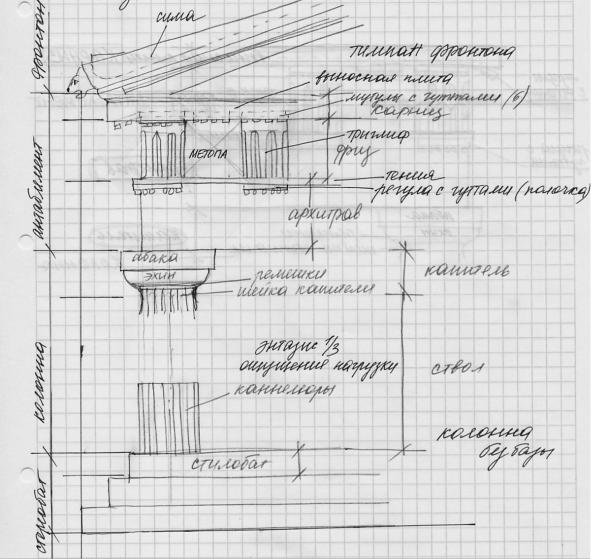 сима
фронтон
тимпан фронтона
выносная плита
мутулы с гуттами (6)
карниз
триглиф
фриз
метопа
тения
регула с гуттами (полочка)
антаблемент
архитрав
абака
эхин
ремешки
шейка капители
капитель
энтазис 1/3
ощущение нагрузки
каннелюры
ствол
колонна
колонна
без базы
стилобат